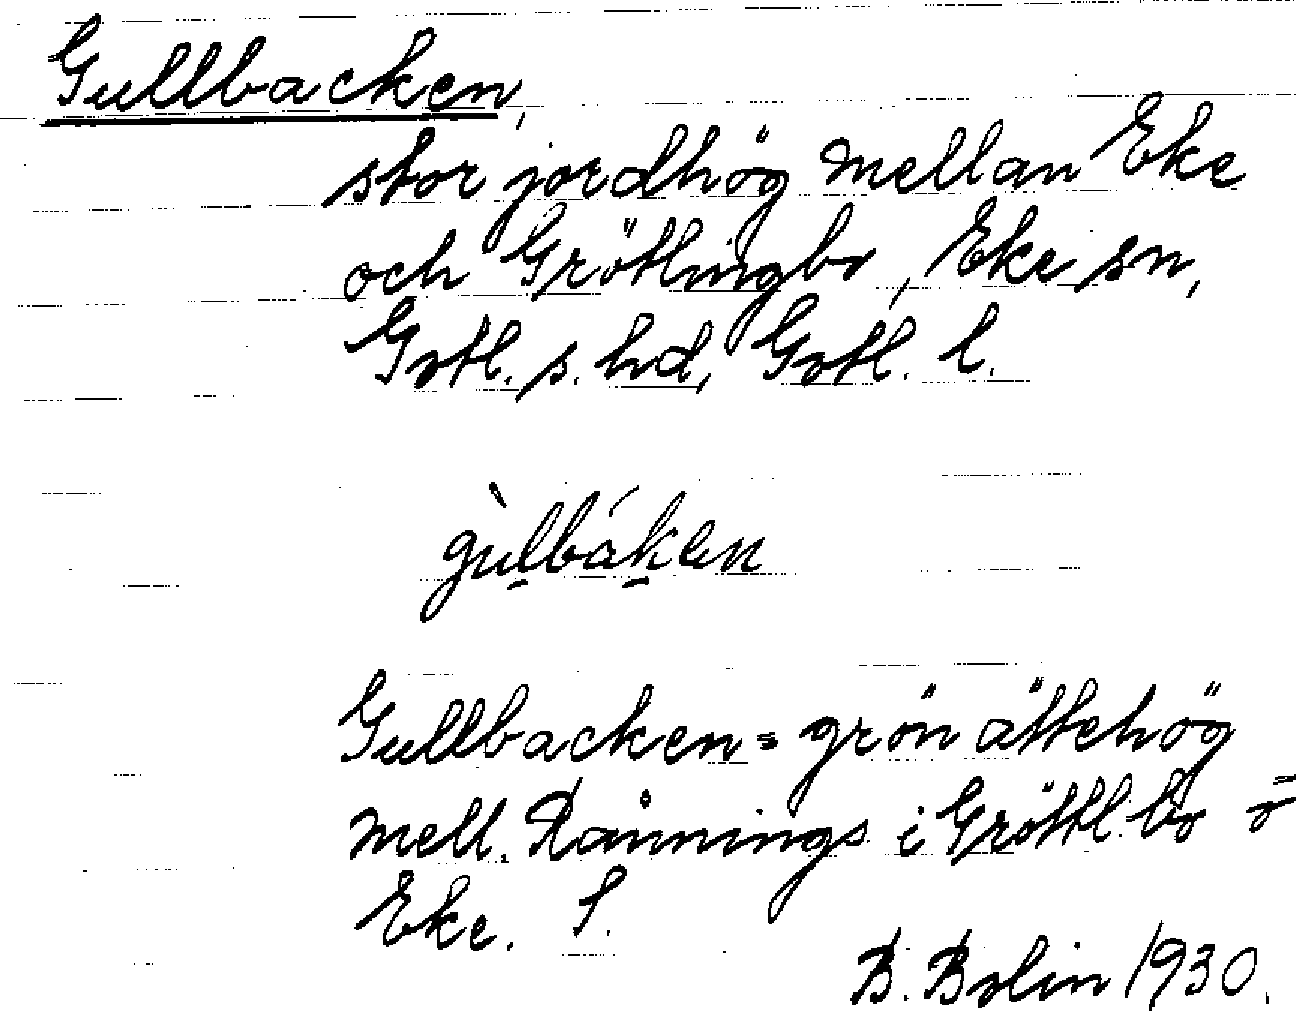 Gullbacken,
stor jordhög mellan Eke
och Grötlingbo, Eke sn,
Gotl. s. hd, Gotl. l.
gùlbáken
Gullbacken = grön ättehög
mell. Rånnings i Gröttl.bo o
Eke. S.
B. Bolin 1930.